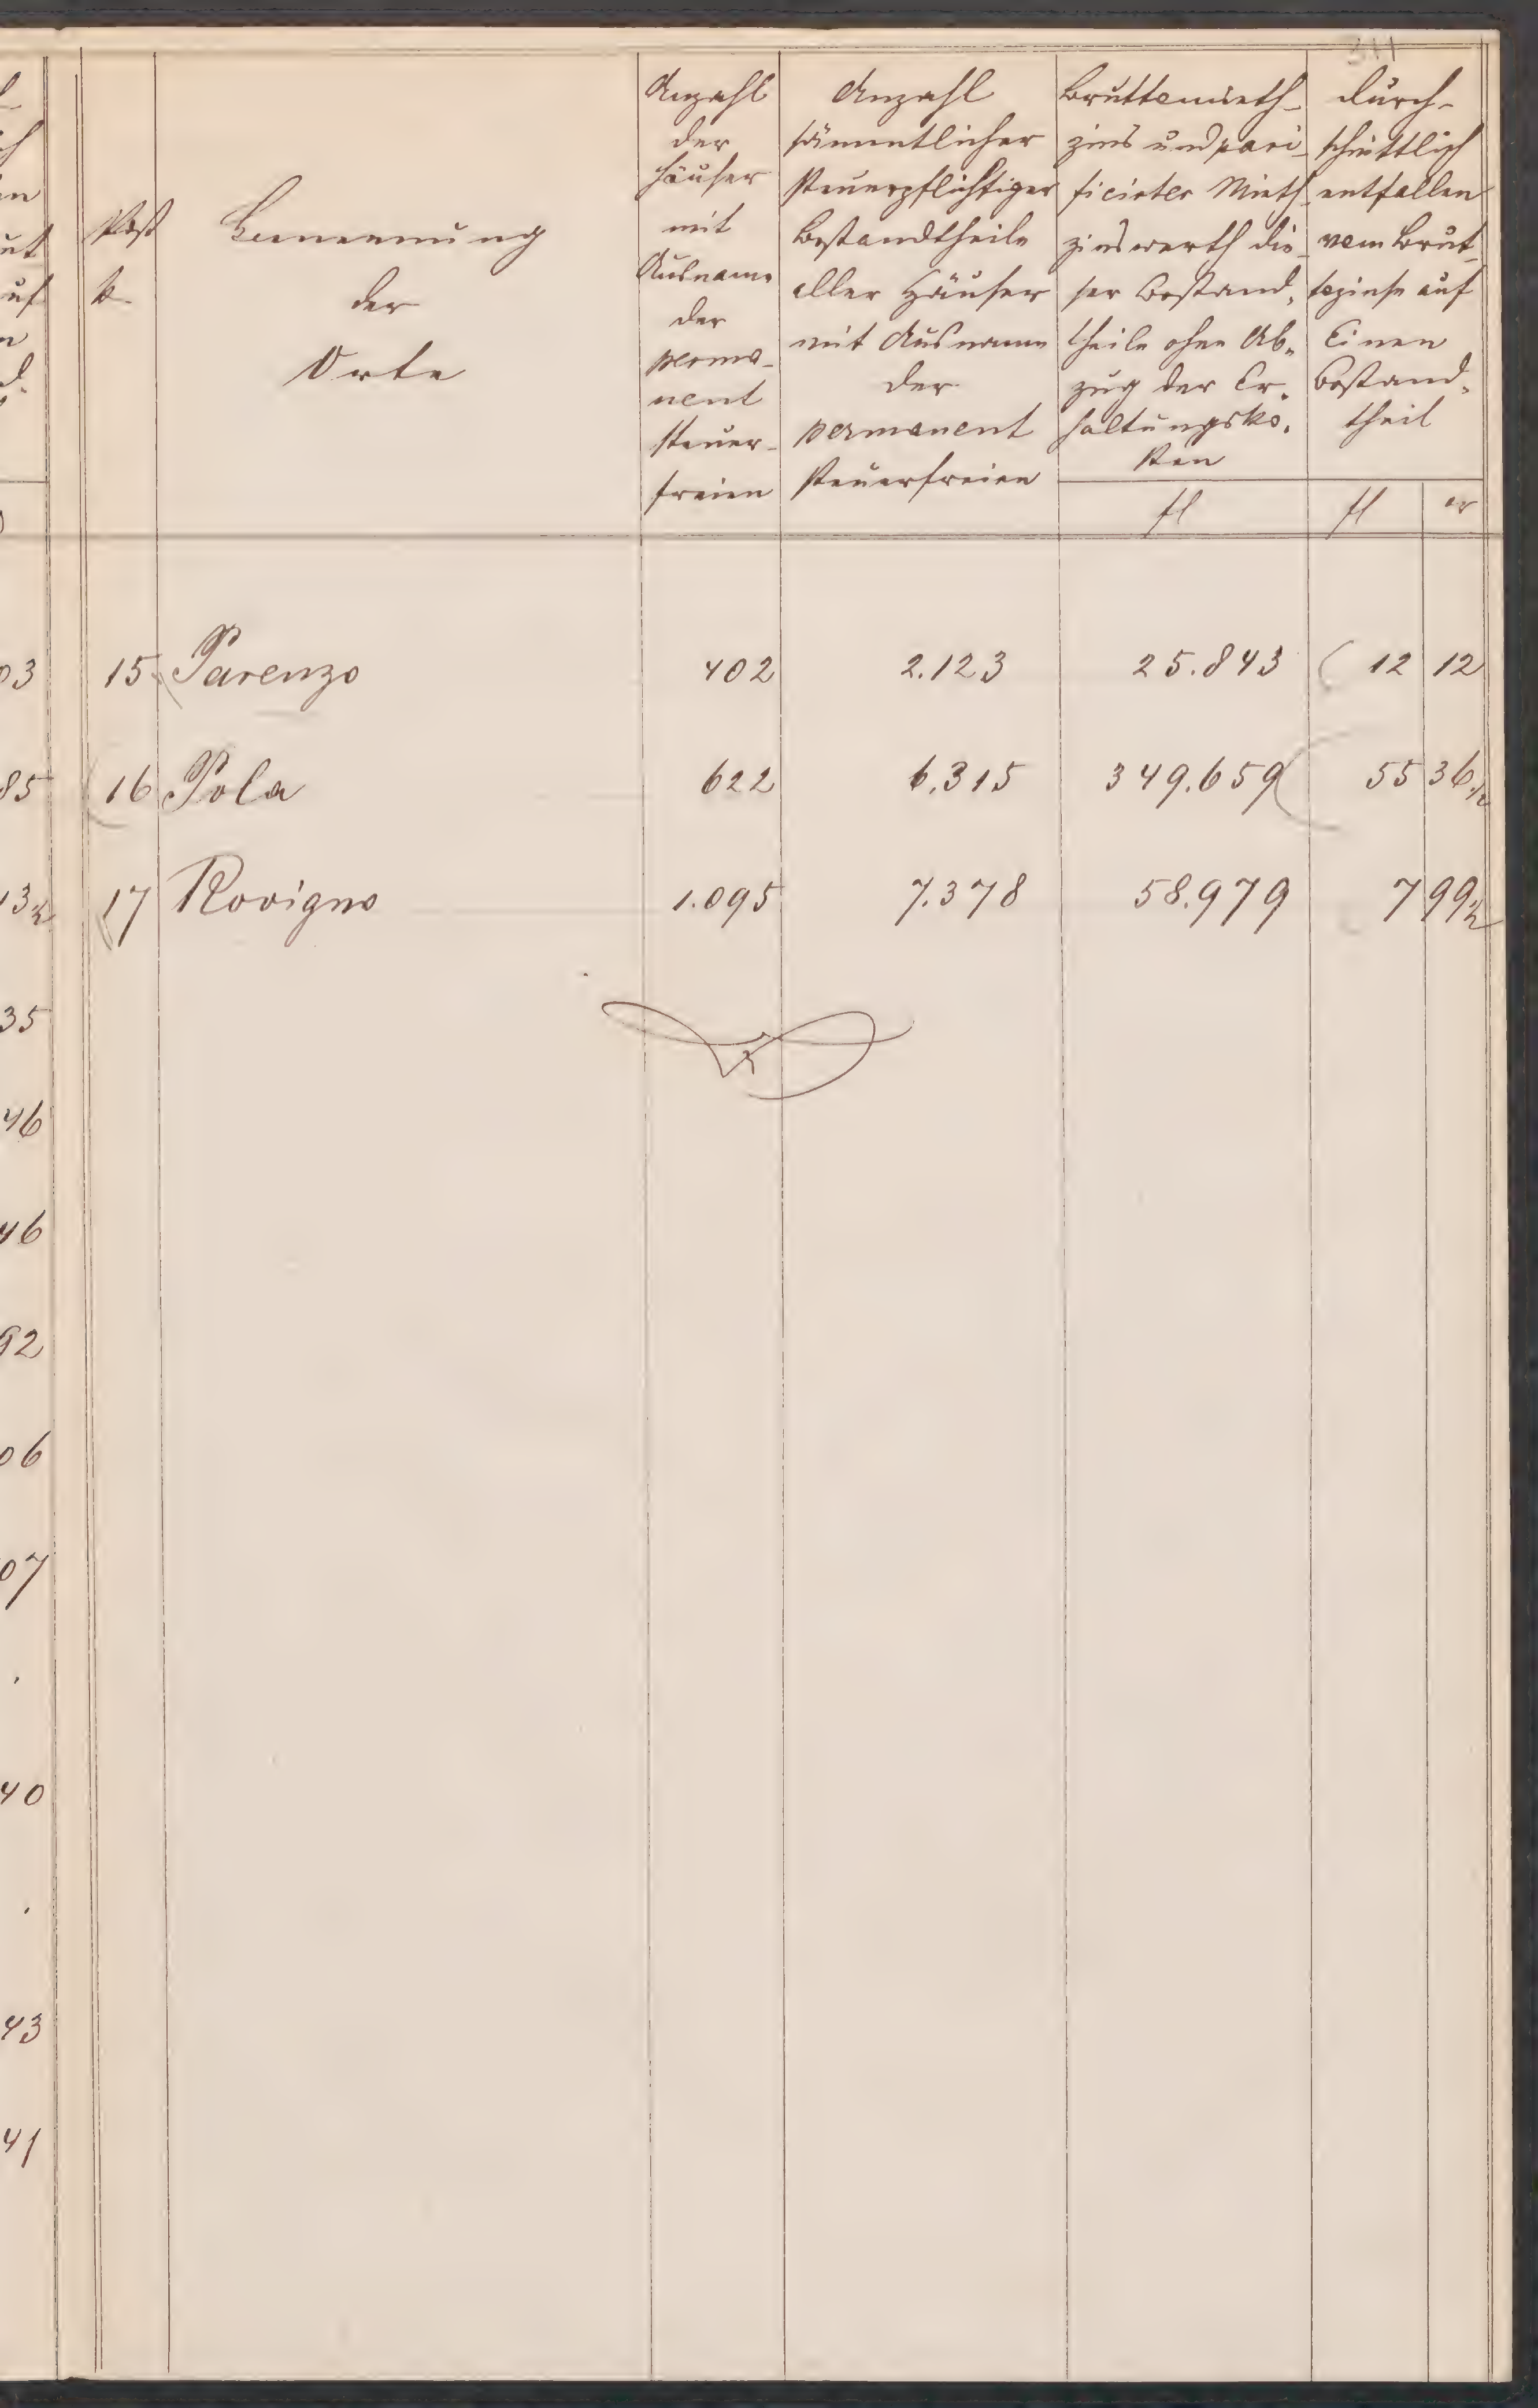 311
Post
Benennung
der
Orte
Anzahl
der
Häuser
mit
Ausname
der
perma-
nent
steuer-
freien
Anzahl
sämmtlicher
steuerpflichtiger
Bestandtheile
aller Häuser
mit Ausname
der
permanent
steuerfreien
Bruttomieth-
zins und pari-
ficirter Mieth-
zinswerth die-
ser Bestand-
theile ohne Ab-
zug der Er-
haltungsko-
sten
fl
durch-
schnittlich
entfallen
vom Brut-
tozinse auf
Einen
Bestand-
theil
fl xr
15 Parenzo 402 2.123 25.843 12 12
16 Pola 622 6.315 349.659 55 36 1/2
17 Rovigno 1.095 7.378 58.979 7 99 1/2
03
85
13 1/2
35
46
46
92
06
07
40
43
41